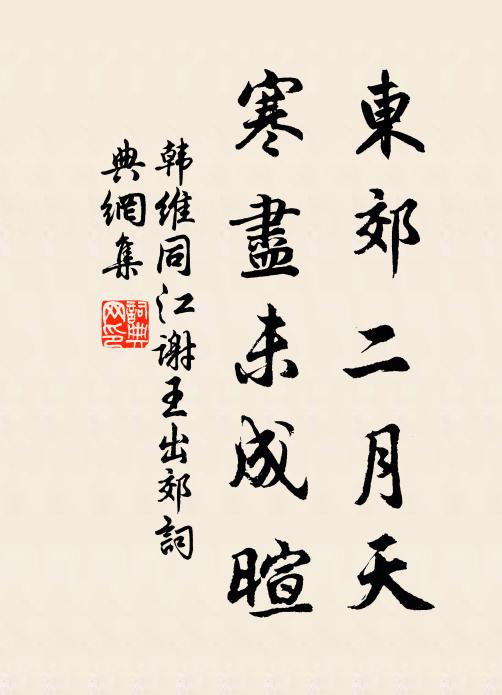 東郊二月天
寒盡未成暄
韩維同江谢王出郊詞
典網集
詞典
网印